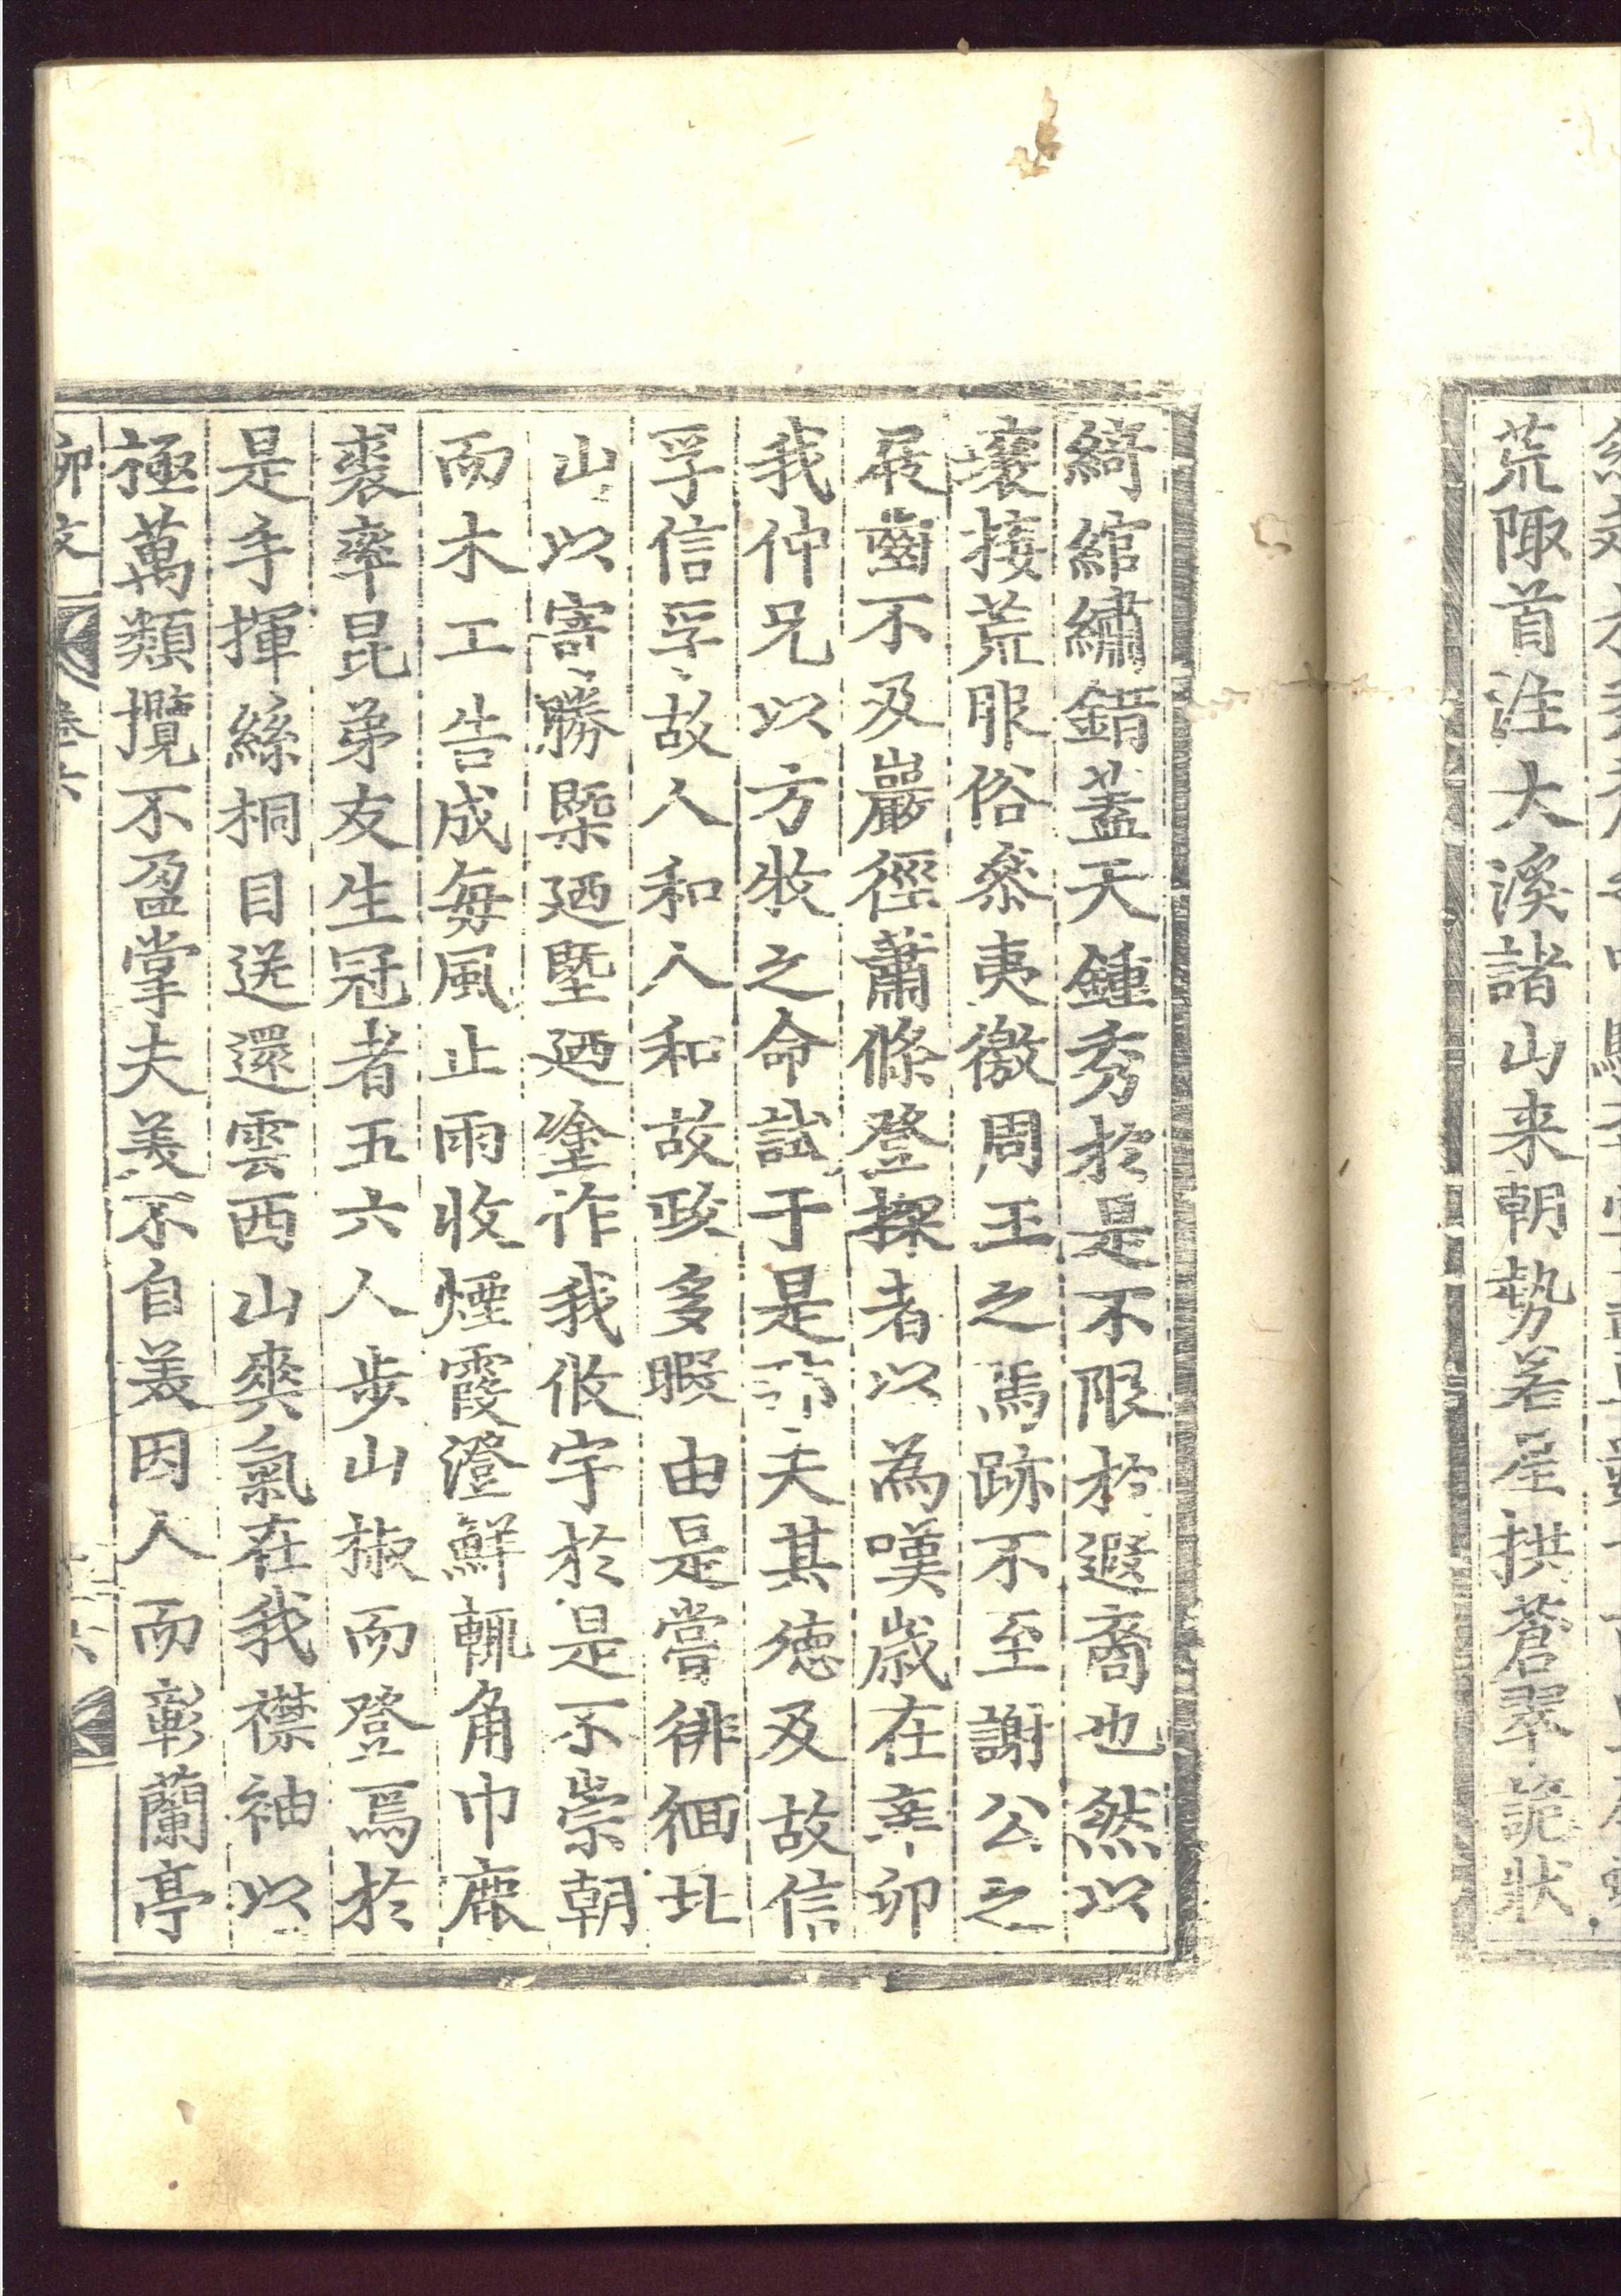 荒陬首注大溪諸山来朝勢若星拱蒼翠詭狀
綺綰繡錯蓋天鍾秀於是不限於遐裔也然以
壤接荒服俗叅夷徼周王之馬跡不至謝公之
屐齒不及巖徑蕭條登探者以為嘆歳在辛卯
我仲兄以方牧之命試于是邦夫其徳及故信
孚信孚故人和人和故政多暇由是嘗徘徊北
山以寄勝槩廼塈廼塗作我攸宇於是不崇朝
而木工告成每風止雨收煙霞澄鮮輒角巾鹿
裘率昆弟友生冠者五六人步山椒而登焉於
是手揮絲桐目送還雲西山爽氣在我襟袖以
極萬類攬不盈掌夫美不自美因人而彰蘭亭
柳文 卷六